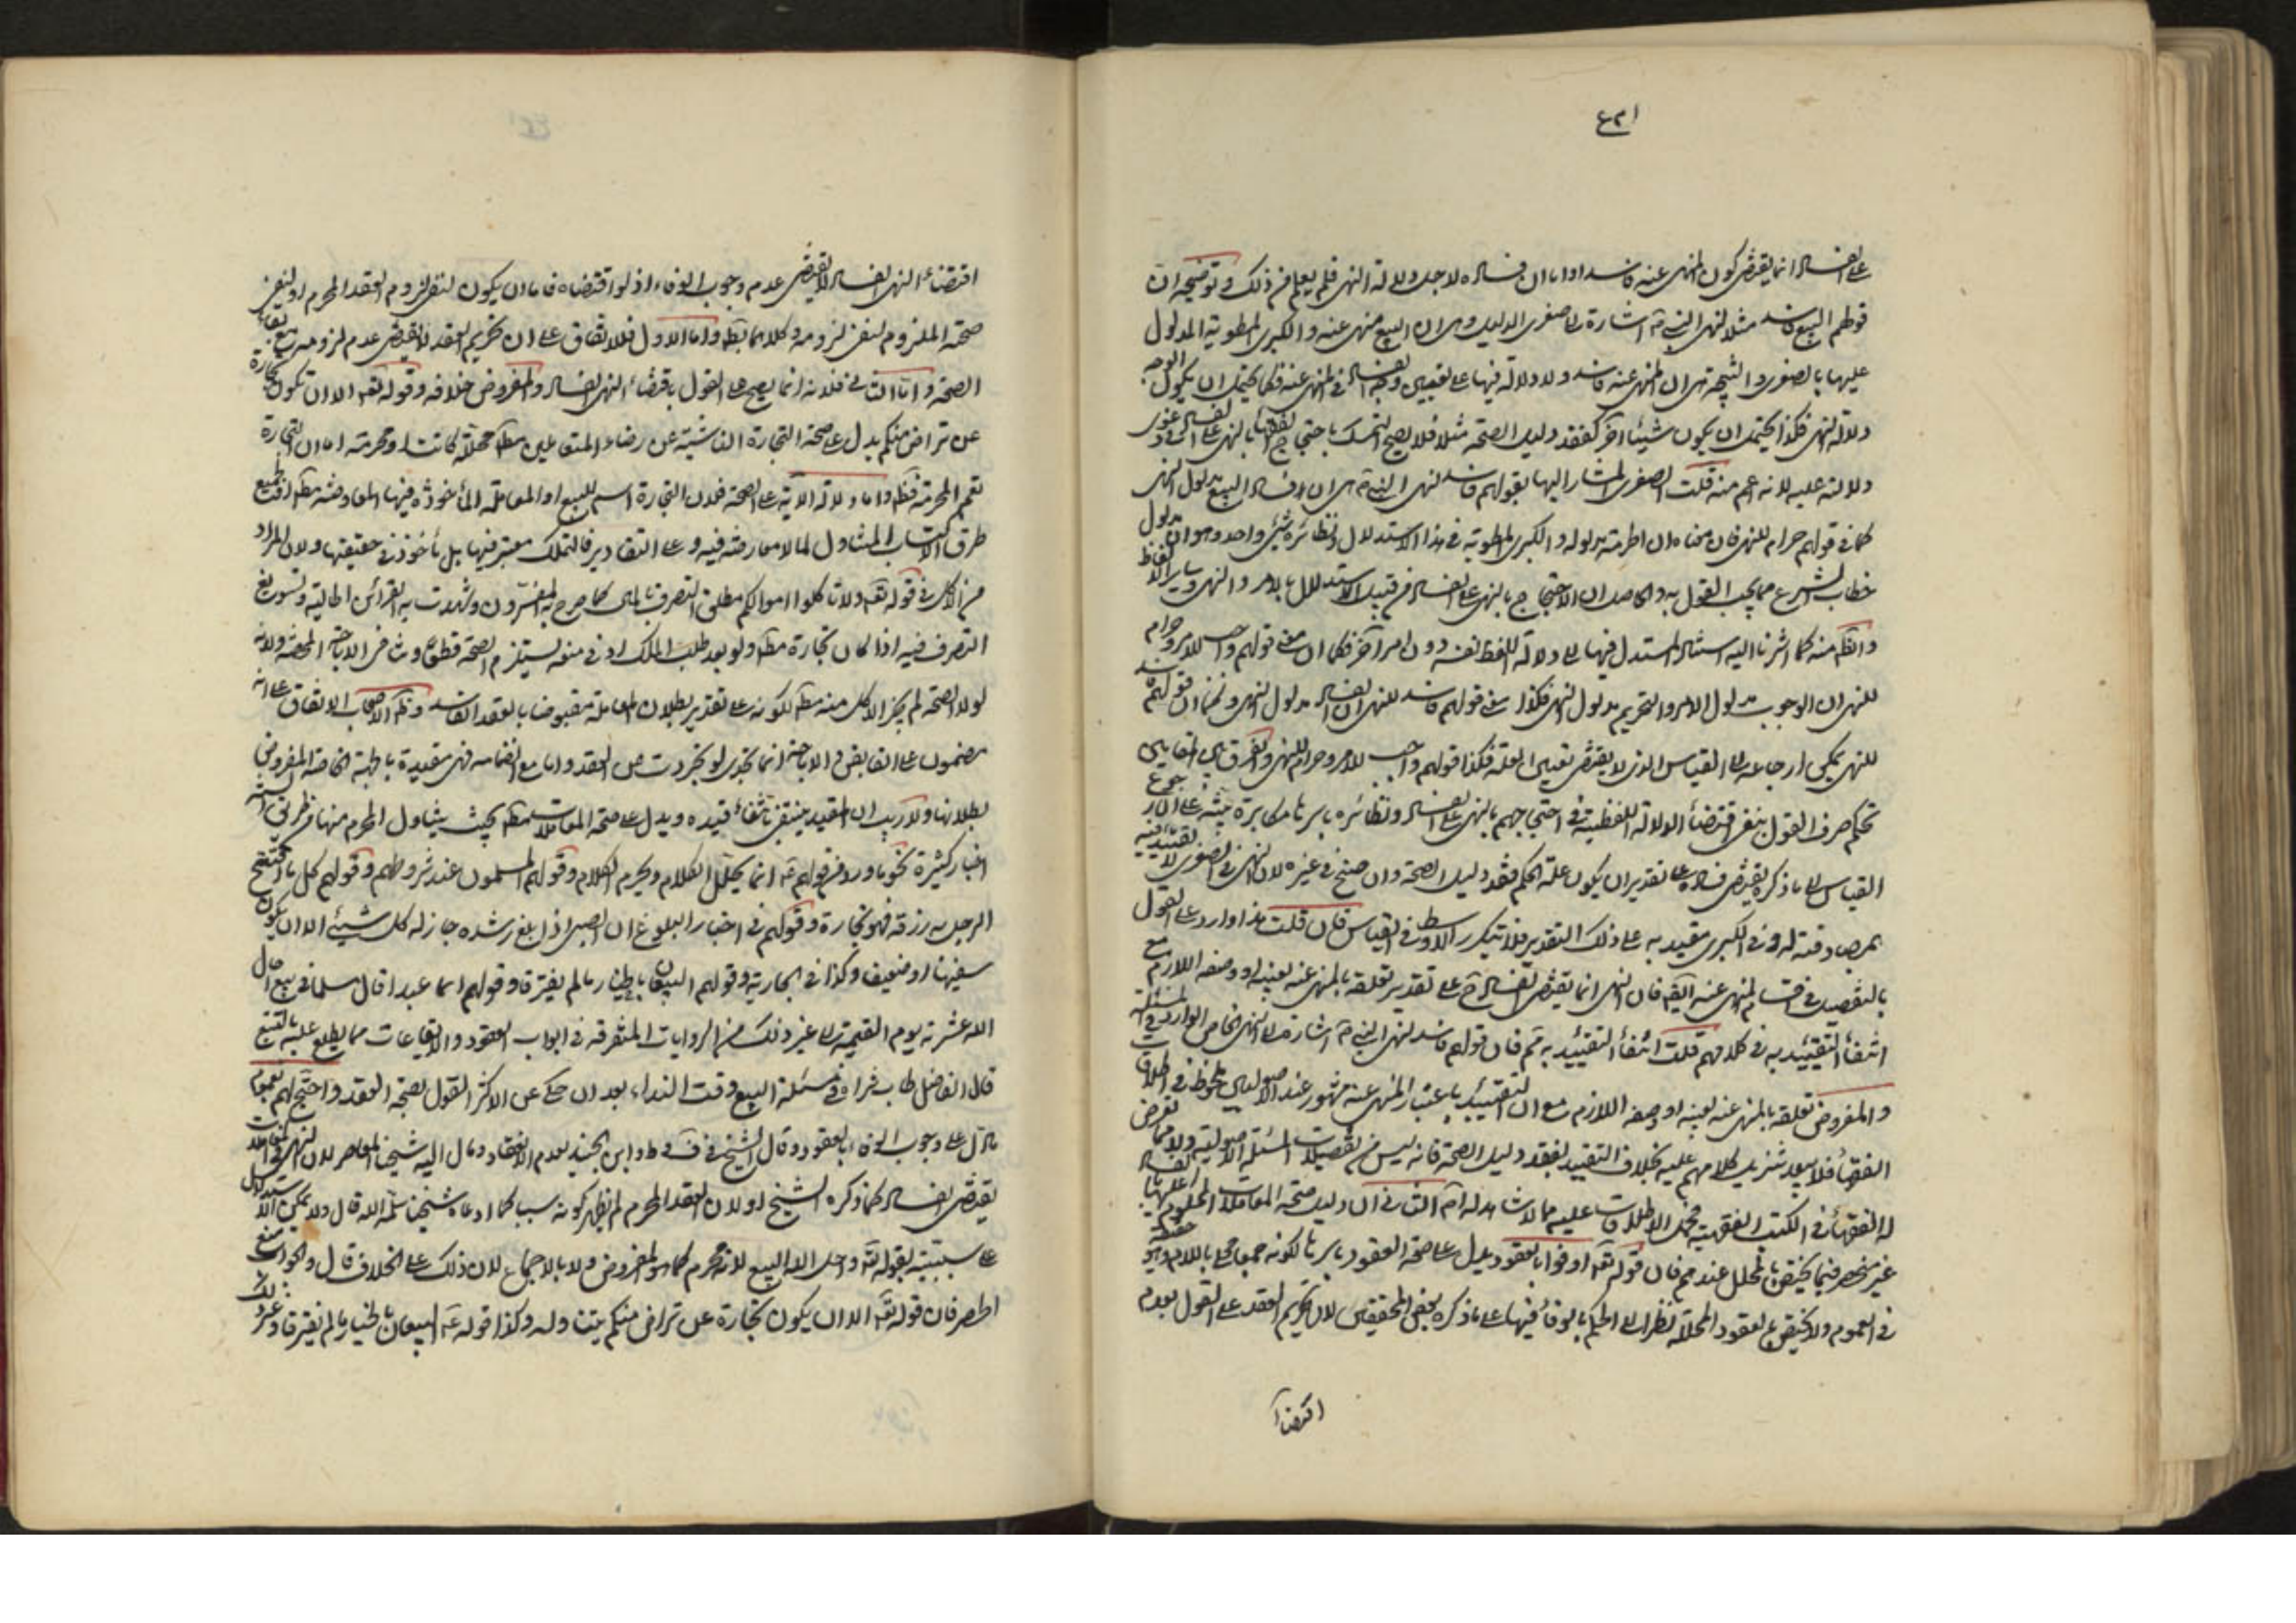 ٤٢١
على الفساد انما يقتضى كون المنهى عنه فاسدا واما ان فساده لاجل دلالة النهى فلم يعلم من ذلك وتوضيحه ان
قولهم البيع فاسد مثلا لنهى النبى ص اشارة الى صغرى الدليل وهى ان البيع منهى عنه والكبرى المطوية المدلول
عليها بالصغرى والنتيجة هى ان المنهى عنه فاسد ولا دلالة فيها على تعيين وجه الفساد فى المنهى عنه فكما يحتمل ان يكون الوجه
دلالة النهى فكذا يحتمل ان يكون شيئا آخر كفقد دليل الصحة مثلا فلا يصح التمسك باحتجاج الفقهاء بالنهى على الفساد فى دعوى
دلالته عليه لانه اعم منه قلت الصغرى المشار اليها بقولهم فاسد لنهى النبى ص هى ان فساد البيع مدلول النهى
كما فى قولهم حرام للنهى فان معناه ان الحرمة مدلوله والكبرى المطوية فى هذا الاستدلال ونظائره شيئ واحد وهو ان مدلول
خطاب الشرع مما يجب القول به والحاصل ان الاحتجاج بالنهى على الفساد من قبيل الاستدلال بالامر والنهى وسائر الالفاظ
والظ منه كما اشرنا اليه استناد المستدل فيها الى دلالة اللفظ نفسه دون امر آخر فكما ان معنى قولهم واجب للامر وحرام
للنهى ان الوجوب مدلول الامر والتحريم مدلول النهى فكذا معنى قولهم فاسد للنهى ان الفساد مدلول النهى وكما ان قولهم فاسد
للنهى يمكن ارجاعه الى القياس الذى لا يقتضى تعيين العلة فكذا قولهم واجب للامر وحرام للنهى والفرق بين المقامين
تحكم صرف القول بنفى اقتضاء الدلالة اللفظية فى احتجاجهم بالنهى على الفساد ونظائره باسرها مكابرة بينة على ان ارجوع
القياس الى ما ذكره يقتضى فساده على تقدير ان يكون علة الحكم فقد دليل الصحة وان صح فى غيره لان النهى فى الصغرى لا تقييد فيه
بمصادفته له وفى الكبرى مقيد به على ذلك التقدير فلا يتكرر الاوسط فى القياس فان قلت هذا وارد على القول
بالتفصيل فى اقسام المنهى عنه ايضا فان النهى انما يقتضى الفساد ح على تقدير تعلقه بالمنهى عنه لعينه او وصفه اللازم مع
انتفاء التقييد به فى كلامهم قلت انتفاء التقييد به ثم فان قولهم فاسد لنهى النبى ص اشارة الى النهى الخاص الوارد فى المسئلة
والمفروض تعلقه بالمنهى عنه لعينه او وصفه اللازم مع ان التقييد باعتبار المنهى عنه مشهور عند الاصوليين ملحوظ فى اطلاق
الفقهاء فلا يبعد تنزيل كلامهم عليه بخلاف التقييد بفقد دليل الصحة فانه ليس من تفصيلات المسئلة الاصولية ولا مما تعرض
له الفقهاء فى الكتب الفقهية فحمل الاطلاقات عليه مما لا شاهد له ثم الثانى ان دليل صحة المعاملات
غير منحصر فيما يختص بالمحلل عندهم فان قوله تع اوفوا بالعقود يدل على صحة العقود باسرها لكونه جمعا محلى باللام
فى العموم ولا يختص بالعقود المحللة نظرا الى الحكم بالوفاء فيها على ما ذكره بعض المحققين لان تحريم العقد على القول بعدم
اقتضاء
اقتضاء النهى الفساد لا يقتضى عدم وجوب الوفاء اذ لو اقتضاه فاما ان يكون لنفى لزوم العقد المحرم او لنفى
صحة الملزوم لنفى لزومه وكلاهما بط واما الاول فللاتفاق على ان تحريم العقد لا يقتضى عدم لزومه مع بقاء
الصحة واما الثانى فلانه انما يصح على القول باقتضاء النهى الفساد والمفروض خلافه وقوله تع الا ان تكون تجارة
عن تراض منكم يدل على صحة التجارة الناشئة عن رضاء المتعاملين مط محللة كانت او محرمة اما ان التجارة
تعم المحرمة فظ واما دلالة الاية على الصحة فلان التجارة اسم للبيع او المعاملة المأخوذة فيها المعاوضة مط او لجميع
طرق الاكتساب المتناول لما لا معاوضة فيه وعلى التقادير فالتملك معتبر فيها بل مأخوذ فى حقيقتها ولان المراد
من الاكل فى قوله تع ولا تاكلوا اموالكم مطلق التصرف بالمال كما صرح به المفسرون وشهدت به القرائن الحالية وتسويغ
التصرف فيه اذا كان تجارة مط ولو بعد طلب المالك او فى منعه يستلزم الصحة قطعا وينافى الاباحة المحضة ولانه
لولا الصحة لم يجز الاكل منه مط لكونه على تقدير بطلان المعاملة مقبوضا بالعقد الفاسد وظ الاصحاب الاتفاق على انه
مضمون على القابض والاباحة انما تجدى لو تجردت عن العقد واما مع انضمامه فهى مقيدة بالجهة الخاصة المفروض
بطلانها ولا ريب ان المقيد ينتفى بانتفاء قيده ويدل على صحة المعاملات مط بحيث يتناول المحرم منها من طرق السنة
اخبار كثيرة نحو ما ورد من قولهم ع انما يحلل الكلام ويحرم الكلام وقولهم المسلمون عند شروطهم وقولهم كل ما افتتح
الرجل به رزقه فهو تجارة وقولهم فى اخبار البلوغ ان الصبى اذا بلغ رشده جاز له كل شيئ الا ان يكون
سفيها او ضعيفا وكذا فى الجارية وقولهم البيعان بالخيار ما لم يفترقا وقولهم ايما عبد اقال مسلما فى بيع اقال
الله عثرته يوم القيمة الى غير ذلك من الروايات المتفرقة فى ابواب العقود والايقاعات مما يطلع عليه بالتتبع
قال الفاضل طاب ثراه فى مسئلة البيع وقت النداء بعد ان حكى عن الاكثر القول بصحة العقد واحتج لهم بعموم
ما دل على وجوب الوفاء بالعقود وقال الشيخ فى ف وط وابن الجنيد بعدم الانعقاد ومال اليه شيخنا المعاصر لان النهى فى المعاملات
يقتضى الفساد كما ذكره الشيخ او لان العقد المحرم لم يظهر كونه سببا كما ادعاه شيخنا سلمه الله قال ولا يمكن الاستدلال
على سببيته بقوله تع واحل الله البيع لانه محرم كما هو المفروض ولا بالاجماع لان ذلك على الخلاف قال والجواب منع
الحصر فان قوله تع الا ان يكون تجارة عن تراض منكم يتناوله وكذا قوله ع البيعان بالخيار ما لم يفترقا وغير ذلك